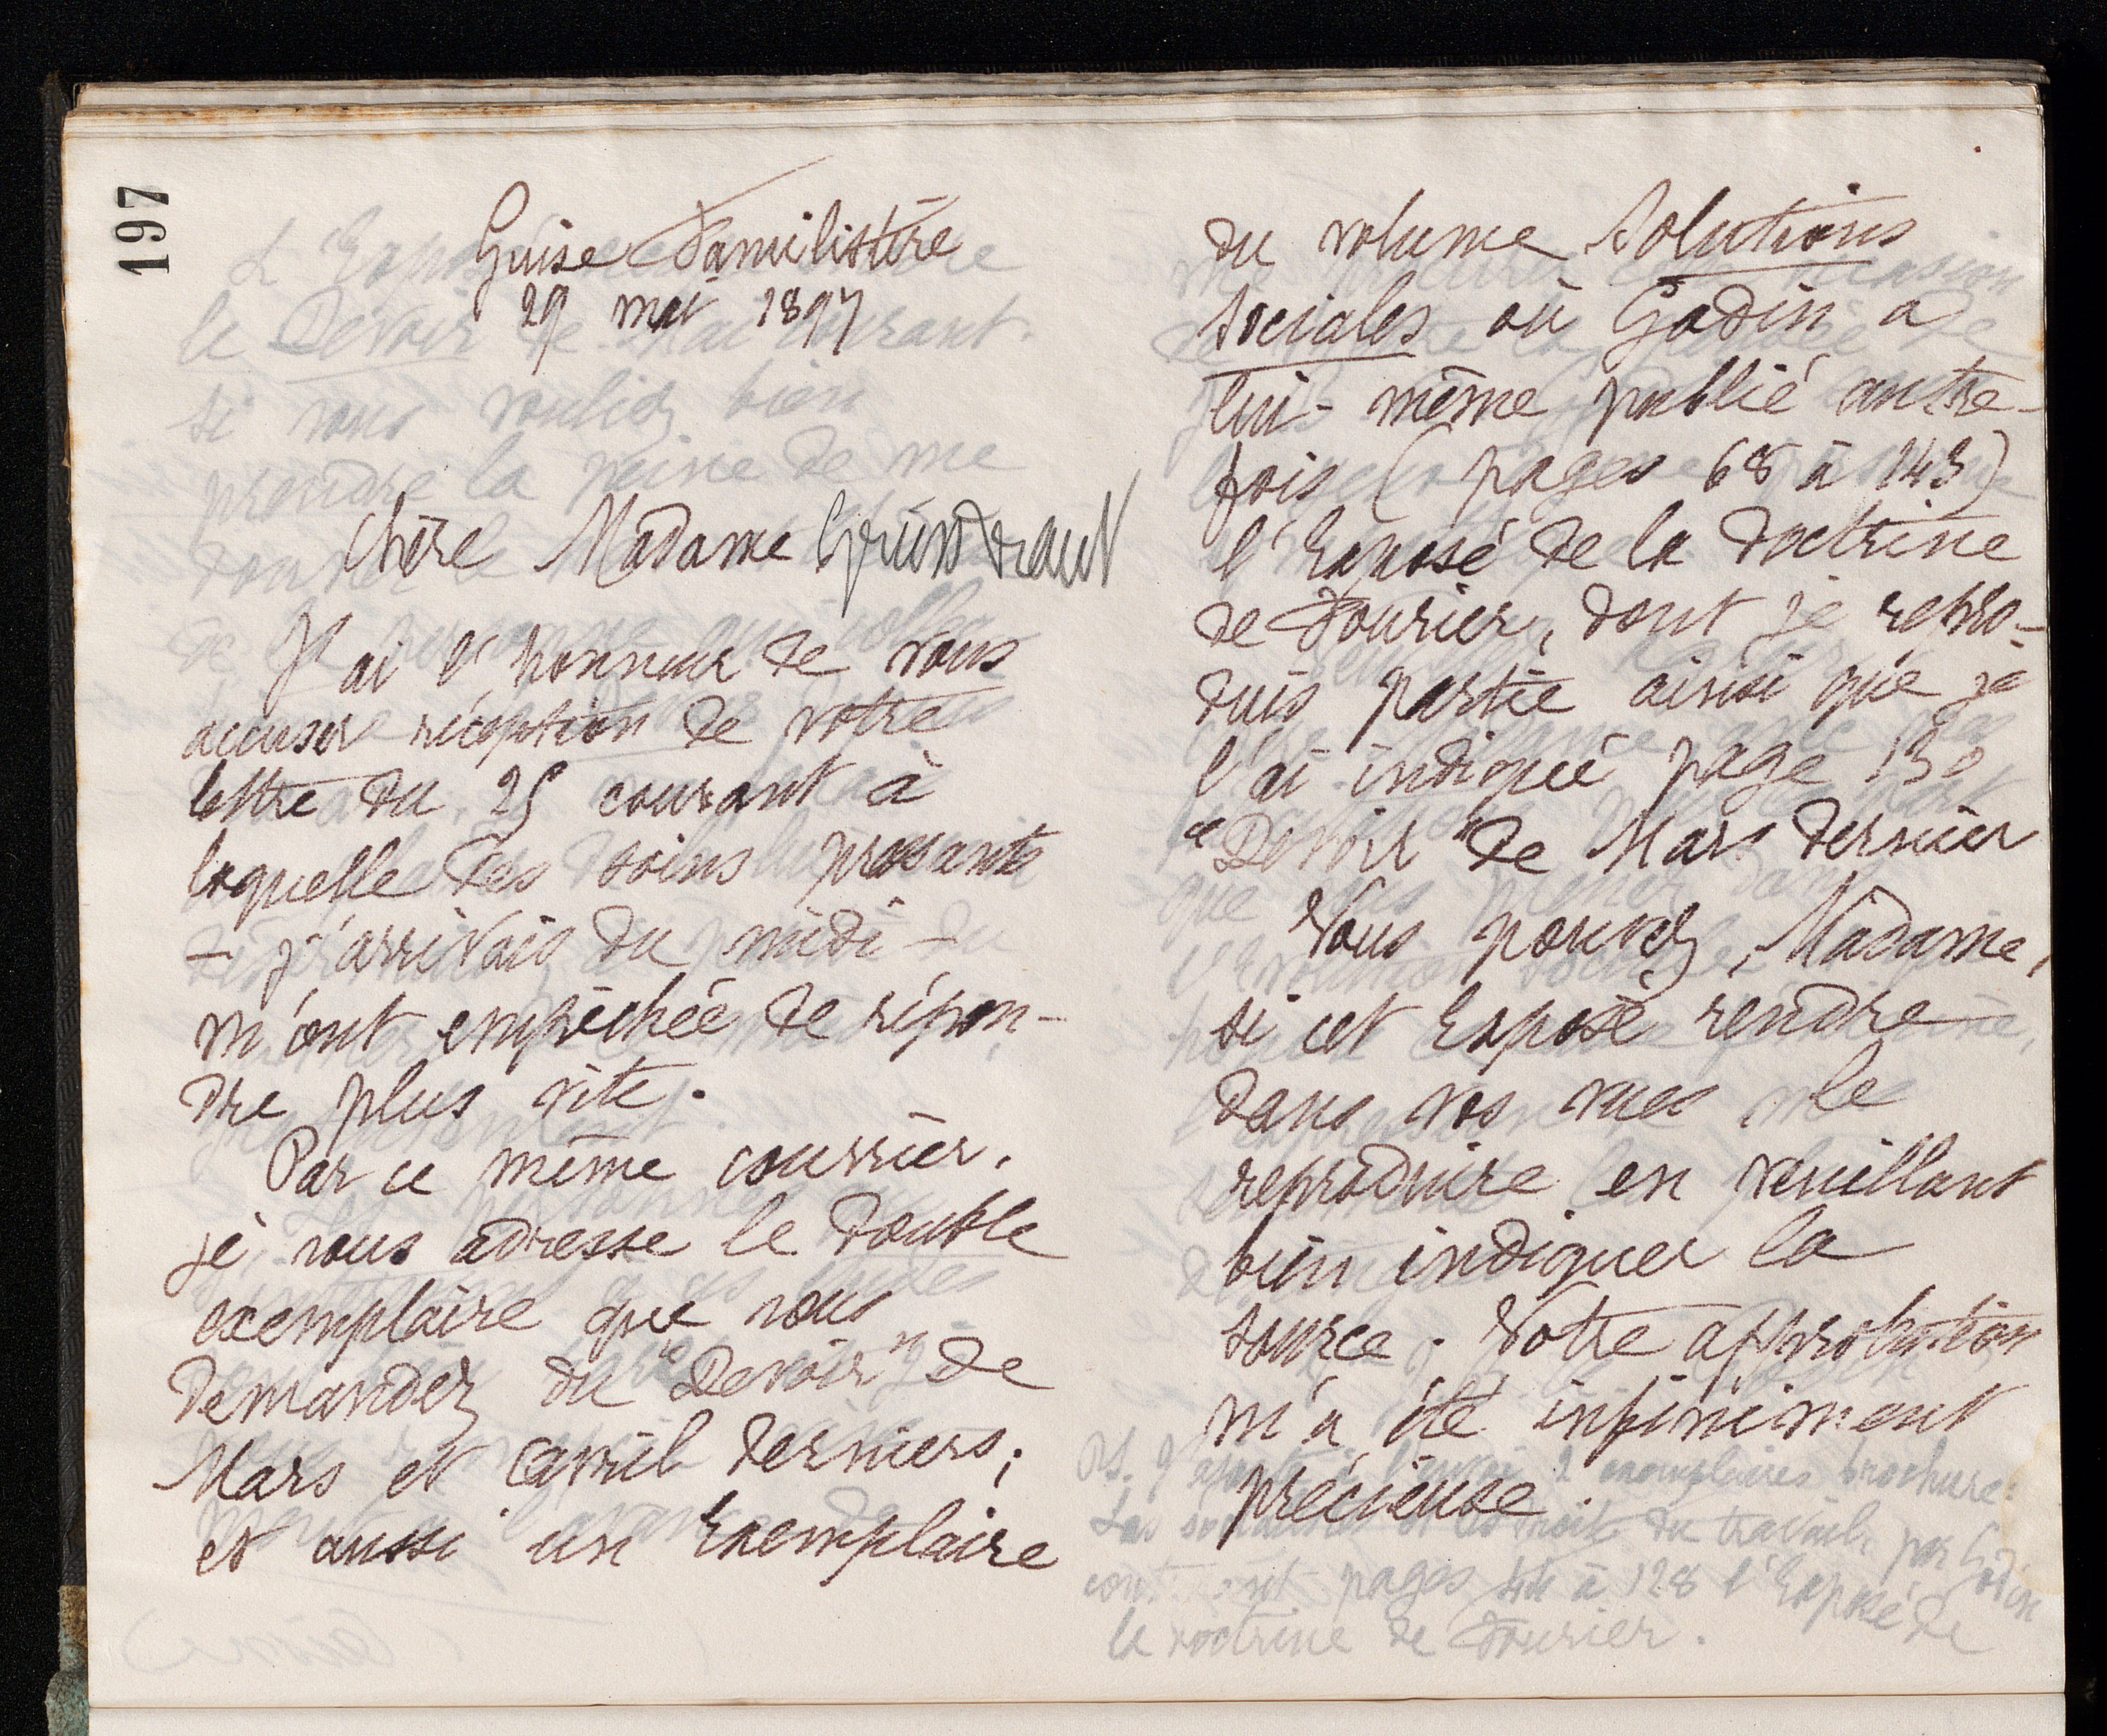 197
Guise Familistère
29 mai 1897
Chère Madame
J'ai l'honneur de vous
accuser réception de votre
lettre du 25 courant à
laquelle des soins pressants
- j'arrivais du midi -
m'ont empêchée de répon-
dre plus vite.
Par ce même courrier,
je vous adresse le double
exemplaire que vous
demandez du "Devoir" de
Mars et avril derniers;
et aussi un Exemplaire
du volume Solutions
Sociales où Godin a
lui-même publié autre-
fois (pages 68 à 143)
l'Exposé de la doctrine
de Fourier, dont je repro-
duis partie ainsi que je
l'ai indiqué page 130
"Devoir" de Mars dernier
Vous pouvez, Madame,
si cet Exposé rendre
dans vos vues le
reproduire en veuillant
bien indiquer la
source. Votre approbation
m'a été infiniment
précieuse.
PS. J'ajoute à l'envoi 2 exemplaires brochure:
Les socialistes et les droits du travail, par Godin
contenant pages à 128 l'Exposé de
la doctrine de Fourier.